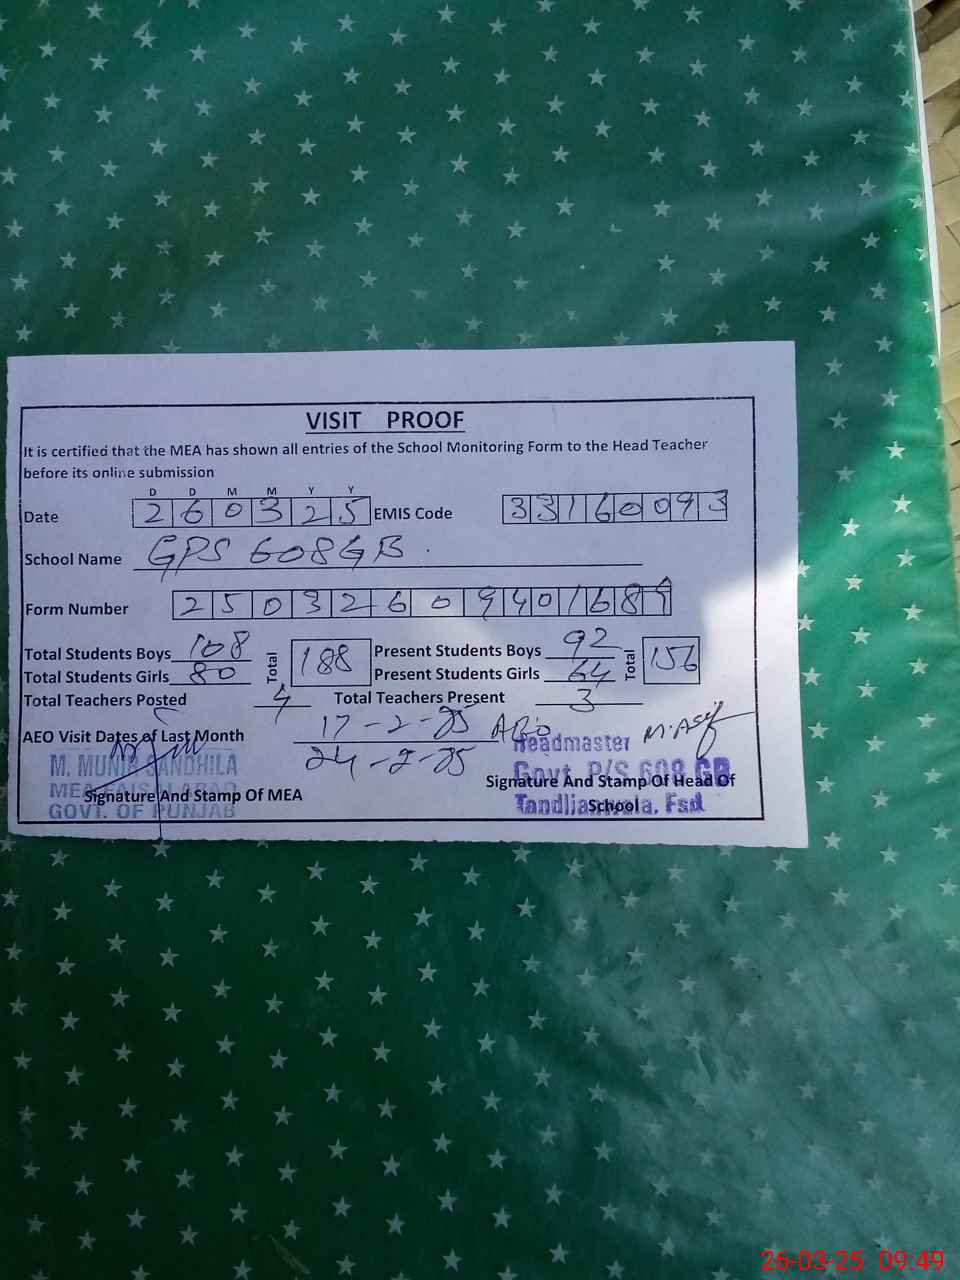 VISIT PROOF
It is certified that the MEA has shown all entries of the School Monitoring Form to the Head Teacher
before its online submission
D D M M Y Y
Date 2 6 0 3 2 5 EMIS Code 3 3 1 6 0 0 9 3
School Name GPS 608GB
Form Number 2 5 0 3 2 6 0 9 4 0 1 6 8 9
Total Students Boys 108 Total 188 Present Students Boys 92 Total 156
Total Students Girls 80 Present Students Girls 64
Total Teachers Posted 4 Total Teachers Present 3
AEO Visit Dates of Last Month 17-2-25
24-2-25
M. MUNIR SANDHILA
MEA FAISALABAD
GOVT. OF PUNJAB
Signature And Stamp Of MEA
M. Asif
Headmaster
Govt. P/S 608 GB
Tandlianwala, Fsd.
Signature And Stamp Of Head Of
School
26-03-25 09:49